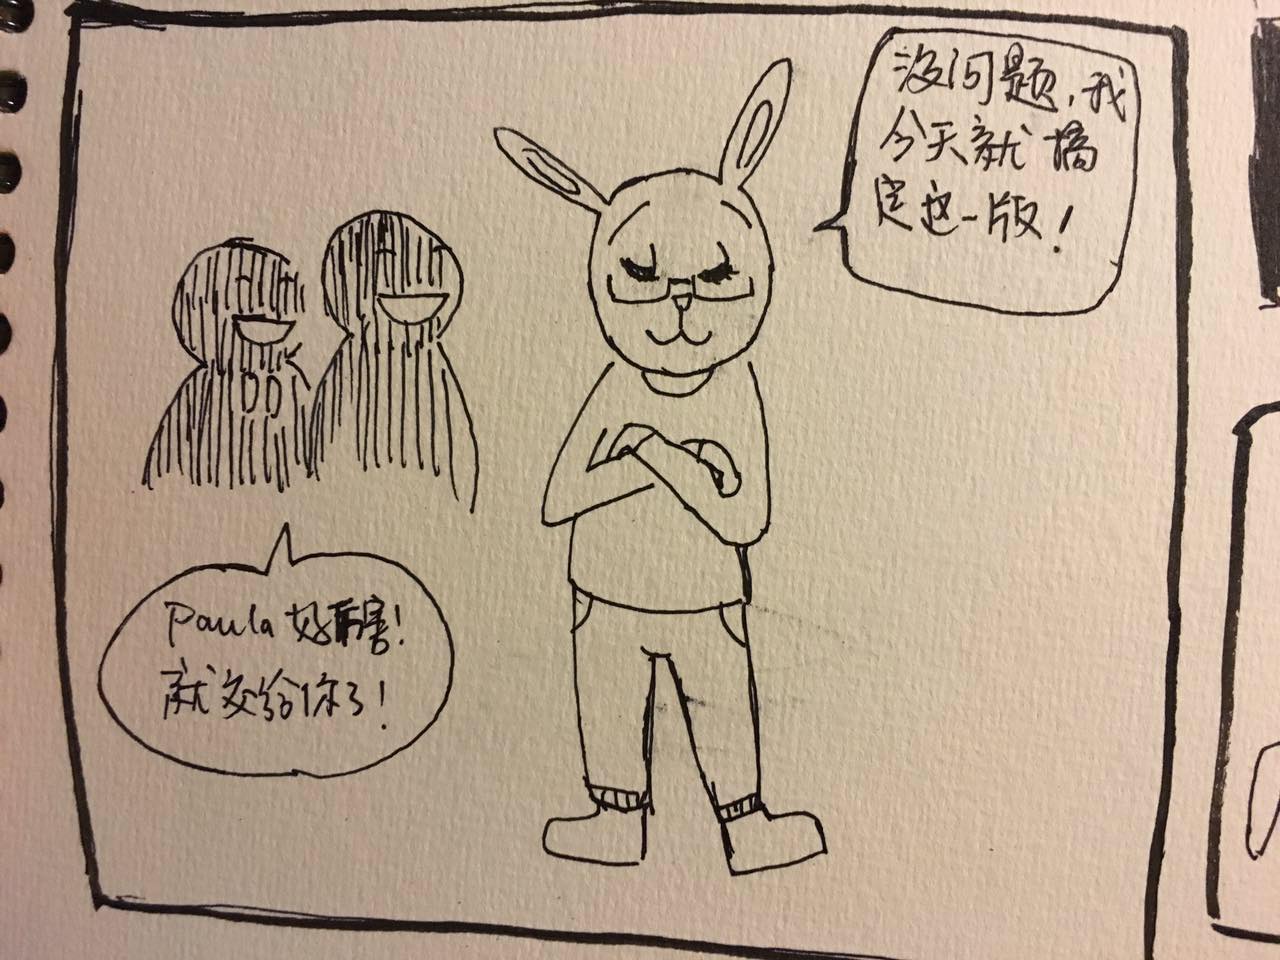 没问题，我
今天就搞
定这一版！
Paula好厉害！
就交给你了！